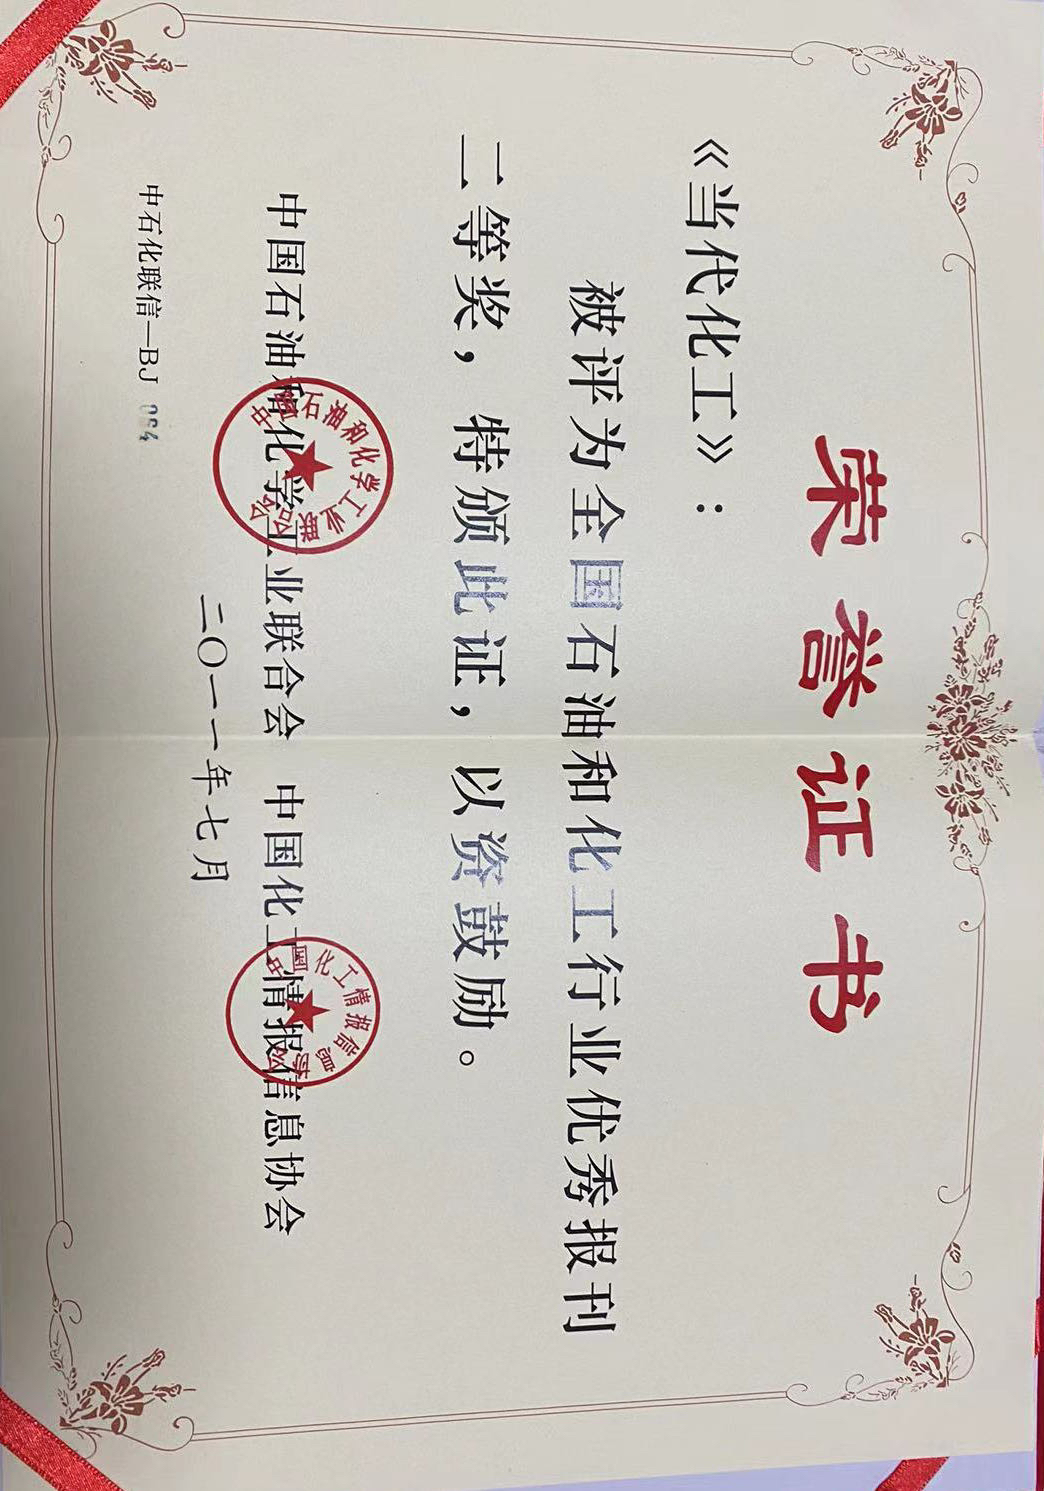 荣誉证书
《当代化工》:
被评为全国石油和化工行业优秀报刊
二等奖,特颁此证,以资鼓励。
中国石油和化学工业联合会 中国化工情报信息协会
中国石油和化学工业联合会
中国化工情报信息协会
二〇一一年七月
中石化联信—BJ 094